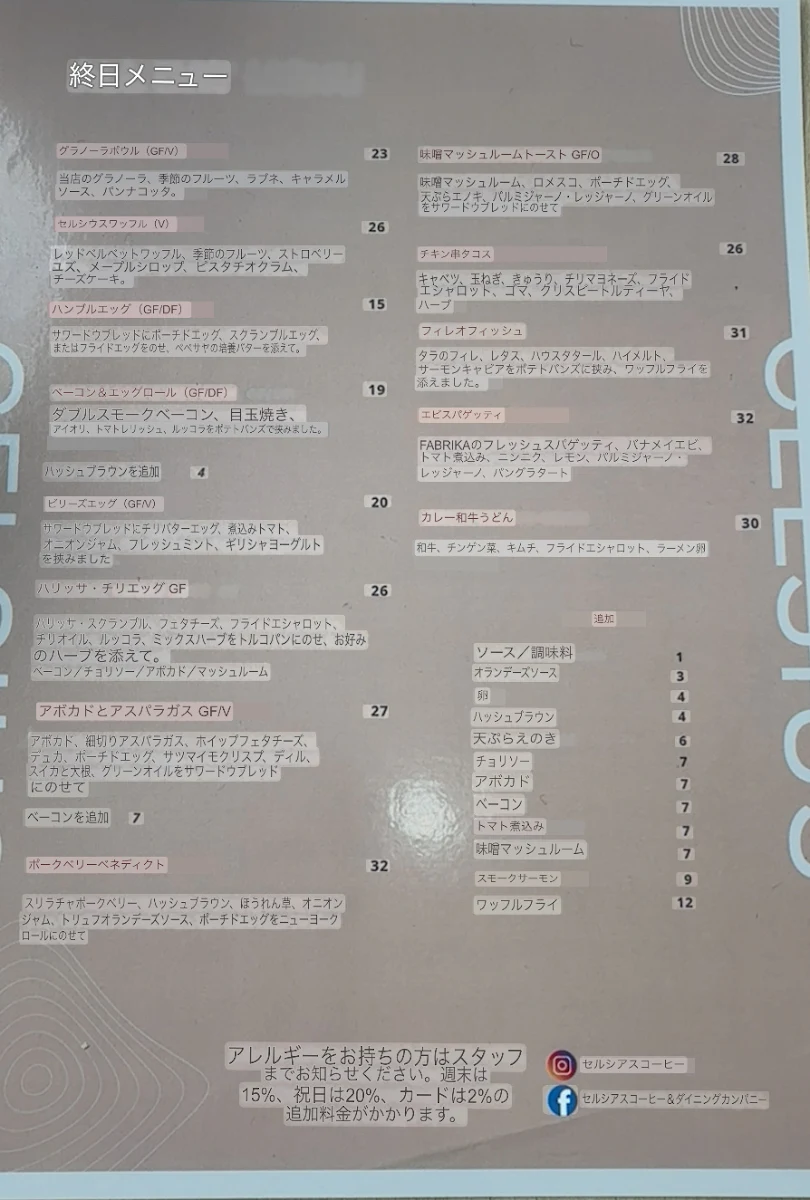 終日メニュー
グラノーラボウル（GF/V） 23
当店のグラノーラ、季節のフルーツ、ラブネ、キャラメル
ソース、パンナコッタ。
セルシウスワッフル（V） 26
レッドベルベットワッフル、季節のフルーツ、ストロベリー
ユズ、メープルシロップ、ピスタチオクラム、
チーズケーキ。
ハンブルエッグ（GF/DF） 15
サワードウブレッドにポーチドエッグ、スクランブルエッグ、
またはフライドエッグをのせ、ペペサヤの培養バターを添えて。
ベーコン＆エッグロール（GF/DF） 19
ダブルスモークベーコン、目玉焼き、
アイオリ、トマトレリッシュ、ルッコラをポテトバンズで挟みました。
ハッシュブラウンを追加 4
ビリーズエッグ（GF/V） 20
サワードウブレッドにチリバターエッグ、煮込みトマト、
オニオンジャム、フレッシュミント、ギリシャヨーグルト
を挟みました
ハリッサ・チリエッグ GF 26
ハリッサ・スクランブル、フェタチーズ、フライドエシャロット、
チリオイル、ルッコラ、ミックスハーブをトルコパンにのせ、お好み
のハーブを添えて。
ベーコン／チョリソー／アボカド／マッシュルーム
アボカドとアスパラガス GF/V 27
アボカド、細切りアスパラガス、ホイップフェタチーズ、
デュカ、ポーチドエッグ、サツマイモクリスプ、ディル、
スイカと大根、グリーンオイルをサワードウブレッド
にのせて
ベーコンを追加 7
ポークベリーベネディクト 32
スリラチャポークベリー、ハッシュブラウン、ほうれん草、オニオン
ジャム、トリュフオランデーズソース、ポーチドエッグをニューヨーク
ロールにのせて
味噌マッシュルームトースト GF/O 28
味噌マッシュルーム、ロメスコ、ポーチドエッグ、
天ぷらエノキ、パルミジャーノ・レッジャーノ、グリーンオイル
をサワードウブレッドにのせて
チキン串タコス 26
キャベツ、玉ねぎ、きゅうり、チリマヨネーズ、フライド
エシャロット、ゴマ、クリスピートルティーヤ、
ハーブ
フィレオフィッシュ 31
タラのフィレ、レタス、ハウスタタール、ハイメルト、
サーモンキャビアをポテトバンズに挟み、ワッフルフライを
添えました。
エビスパゲッティ 32
FABRIKAのフレッシュスパゲッティ、バナメイエビ、
トマト煮込み、ニンニク、レモン、パルミジャーノ・
レッジャーノ、パングラタート
カレー和牛うどん 30
和牛、チンゲン菜、キムチ、フライドエシャロット、ラーメン卵
追加
ソース／調味料 1
オランデーズソース 3
卵 4
ハッシュブラウン 4
天ぷらえのき 6
チョリソー 7
アボカド 7
ベーコン 7
トマト煮込み 7
味噌マッシュルーム 7
スモークサーモン 9
ワッフルフライ 12
アレルギーをお持ちの方はスタッフ
までお知らせください。週末は
15%、祝日は20%、カードは2%の
追加料金がかかります。
セルシアスコーヒー
セルシアスコーヒー＆ダイニングカンパニー